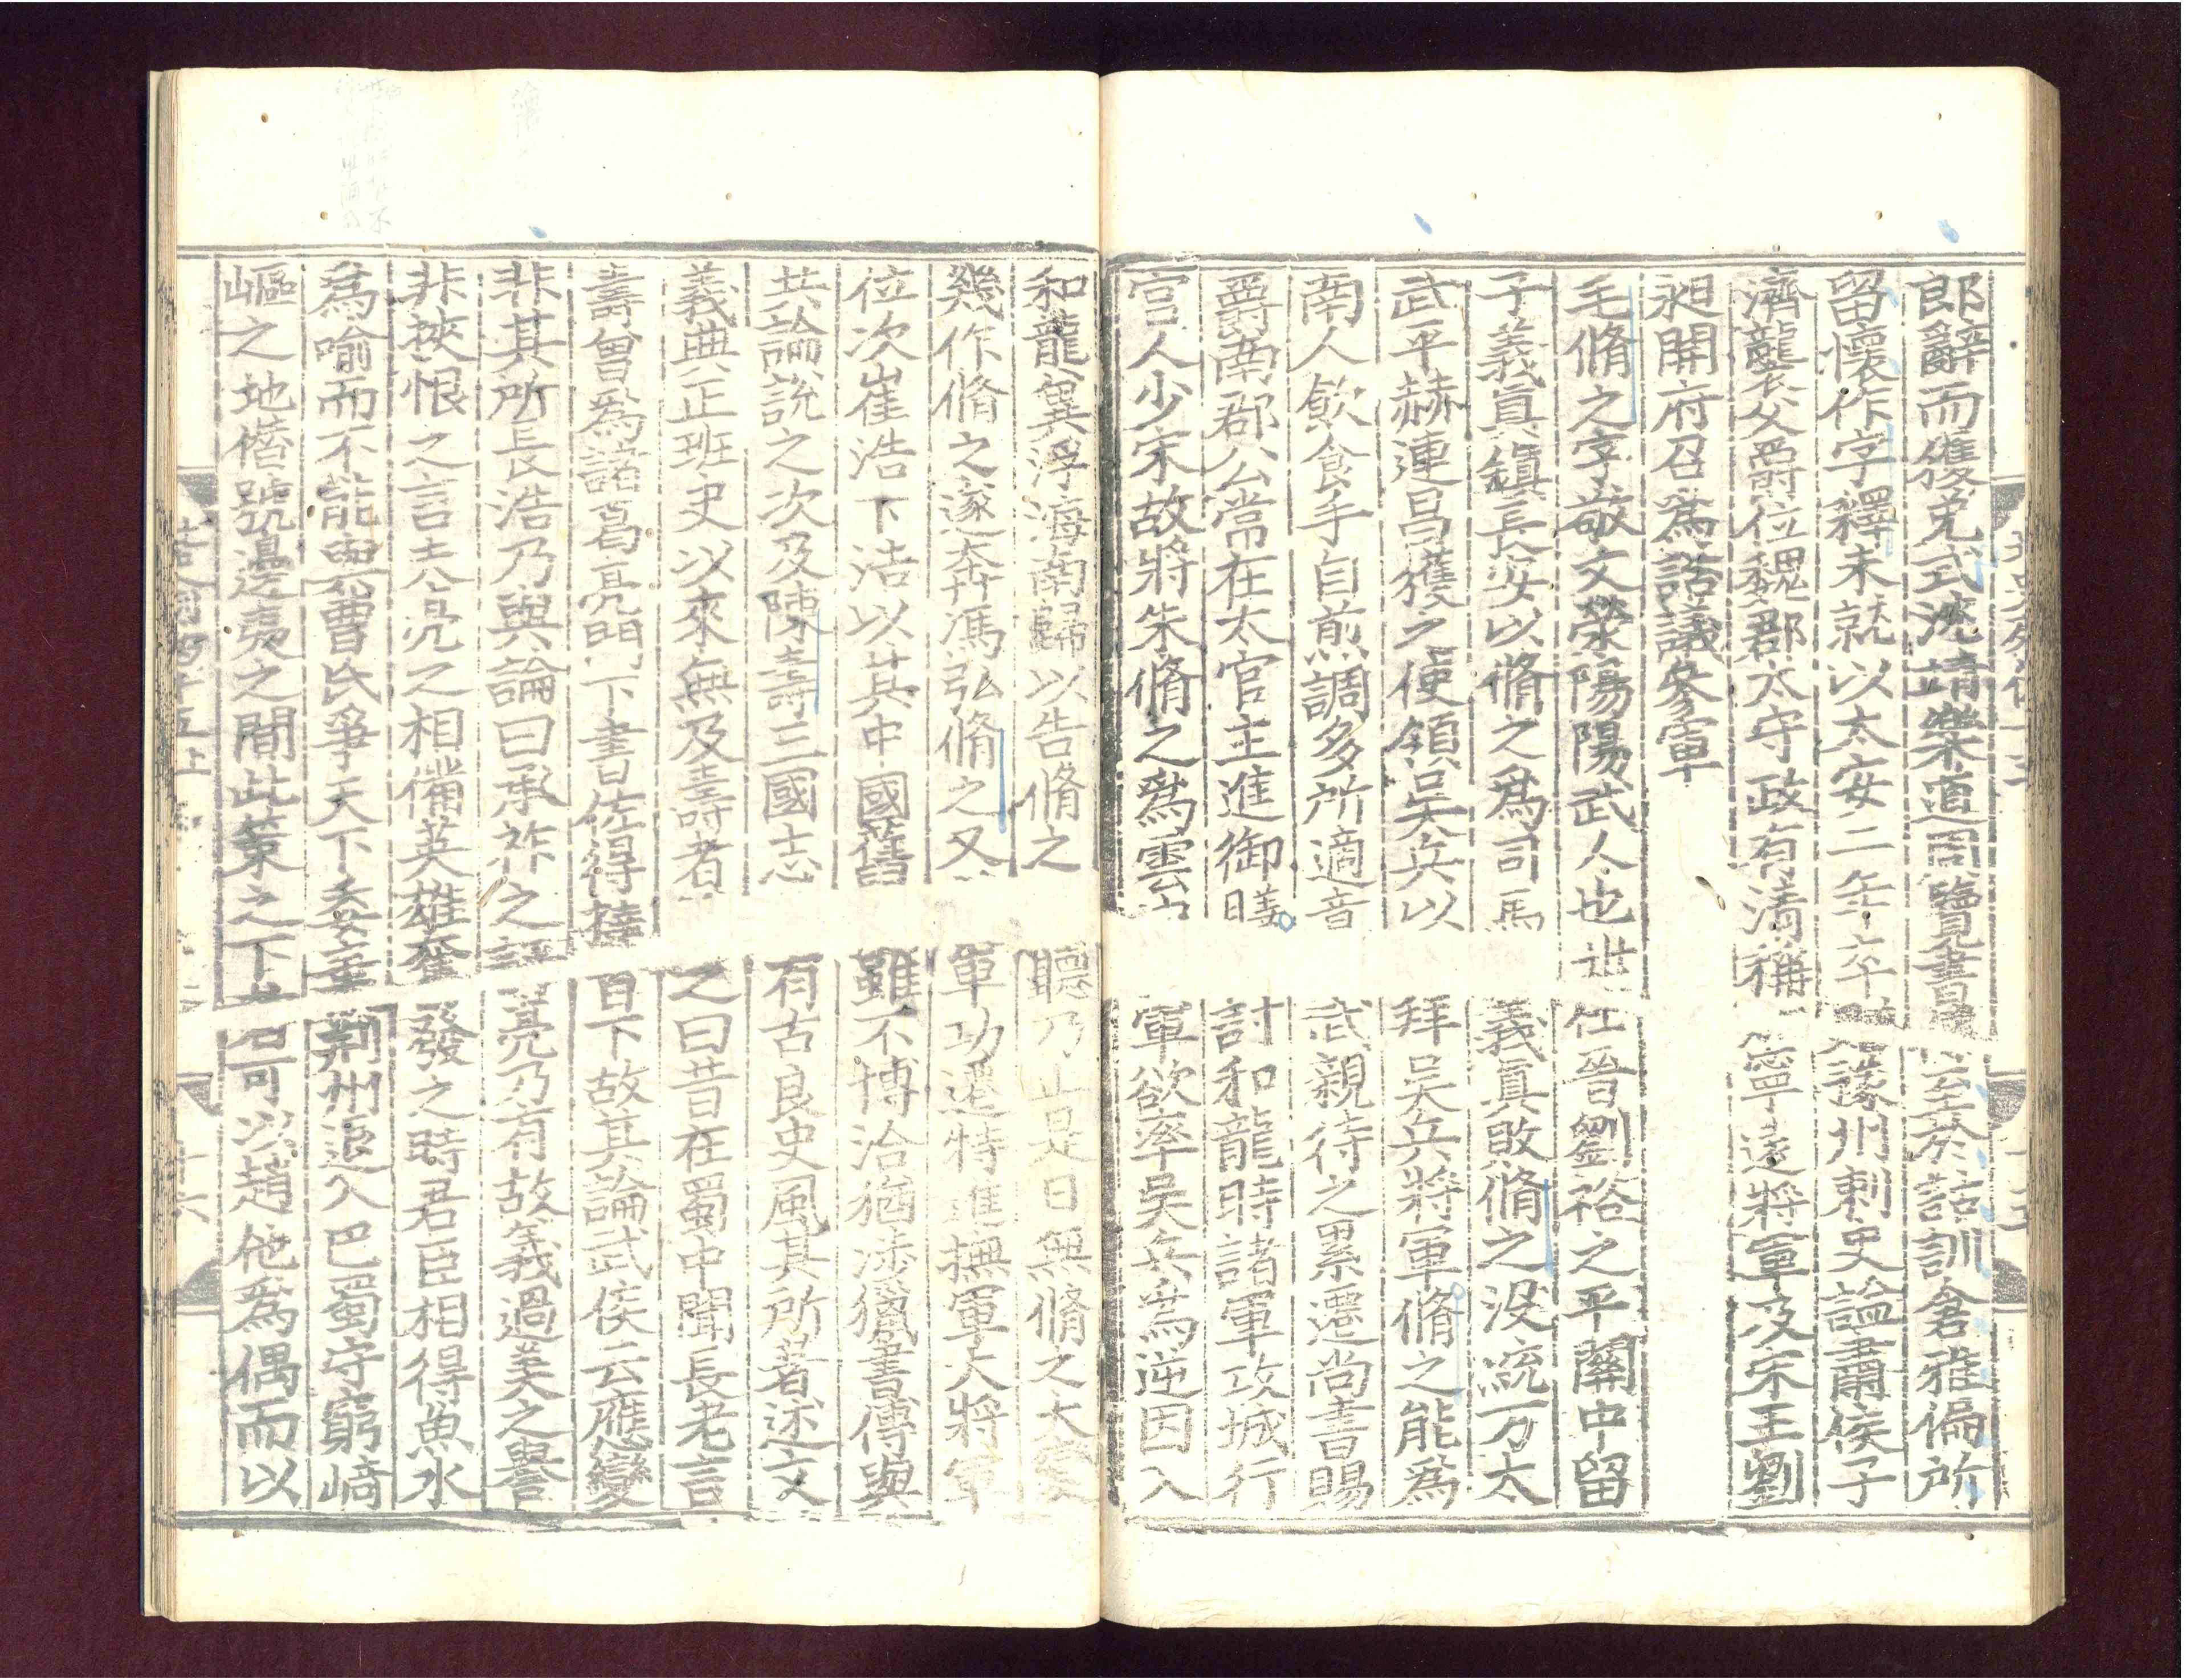 郎辭而獲免式沈靖樂道周覽書
至於詁訓倉雅偏所
留懷作字釋未就以太安二年卒
豫州刺史謚肅侯子
濟襲父爵位魏郡太守政有清稱
寧遠將軍及宋王劉
昶開府召爲諮議參軍
毛脩之字敬文滎陽陽武人也世
仕晉劉裕之平關中留
子義真鎮長安以脩之爲司馬
義真敗脩之沒統万太
武平赫連昌獲之使領吳兵以
拜吳兵將軍脩之能爲
南人飲食手自煎調多所適音
武親待之累遷尚書賜
爵南郡公常在太官主進御膳
討和龍時諸軍攻城行
宮人少宋故將朱脩之爲雲中
軍欲率吳兵爲逆因入
和龍冀浮海南歸以告脩之
聽乃止是日無脩之大變
幾作脩之遂奔馮弘脩之又
軍功遷特進撫軍大將軍
位次崔浩下浩以其中國舊
雖不博洽猶涉獵書傳與
共論說之次及陳壽三國志
有古良史風其所著述文
義典正班史以來無及壽者
之曰昔在蜀中聞長老言
壽曾爲諸葛亮門下書佐得撻
百下故其論武侯云應變
非其所長浩乃與論曰承祚之評
亮乃有故義過美之譽
非挾恨之言夫亮之相備英雄奮
發之時君臣相得魚水
爲喻而不能與曹氏爭天下委棄
荆州退入巴蜀守窮崎
嶇之地僭號邊夷之間此策之下
可以趙他爲偶而以